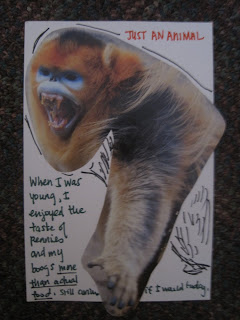 JUST AN ANIMAL
When I was
young, I
enjoyed the
taste of
Pennies
and my
boogs more
than actual
food. Still
if I